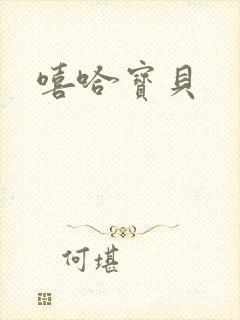 嘻哈寶貝
何堪